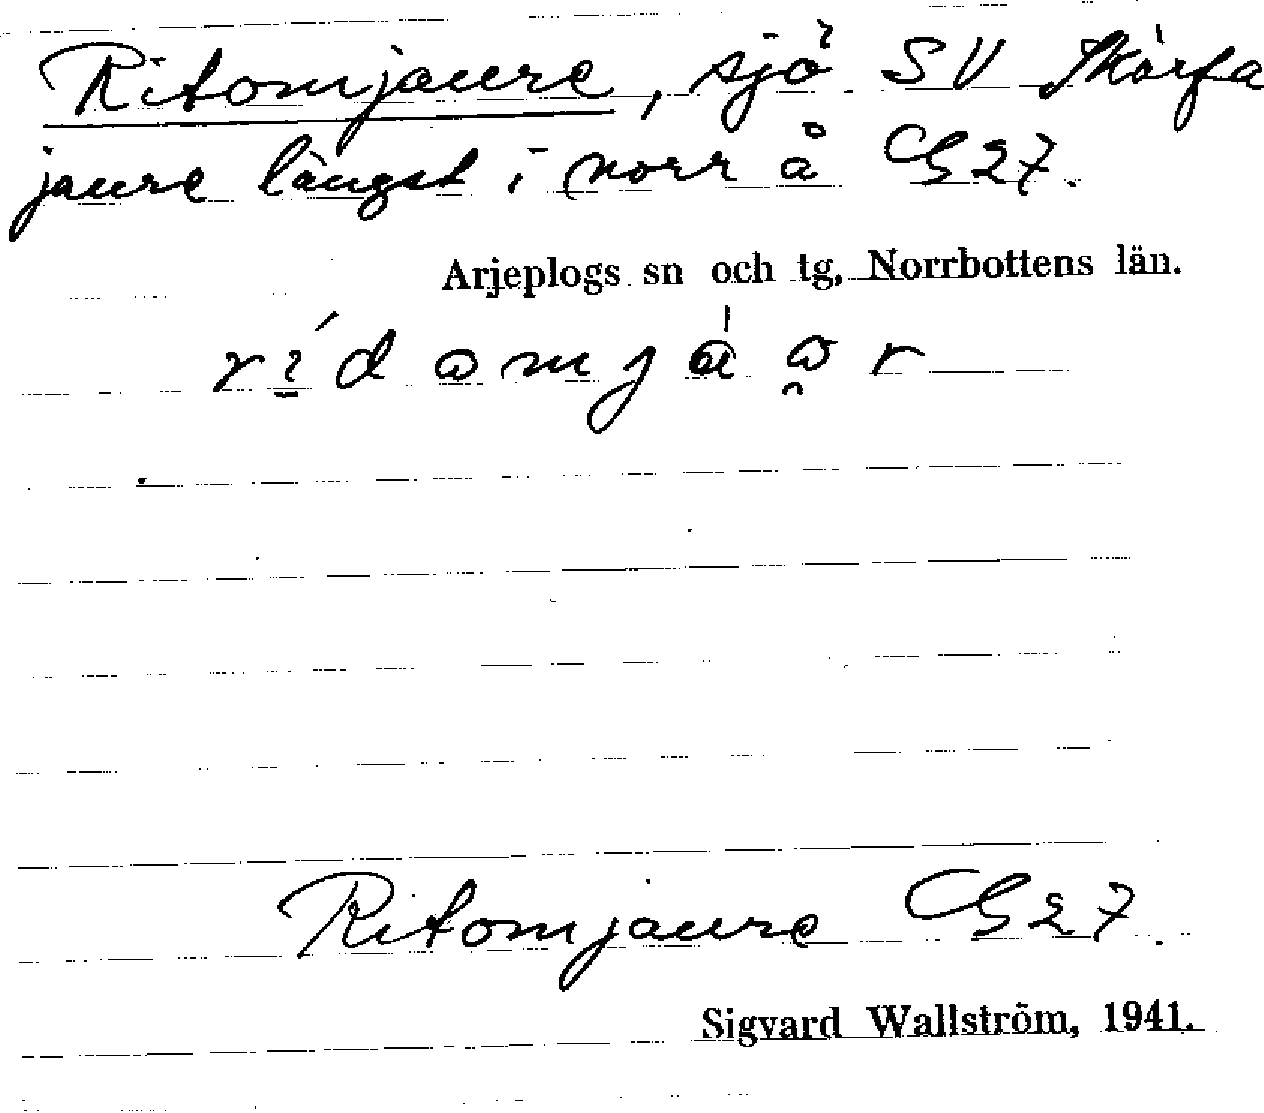 Ritomjaure, sjö SV Skärfa
jaure längst i norr å G27.
Arjeplogs sn och tg, Norrbottens län.
Ritomjaure G27.
Sigvard Wallström, 1941.